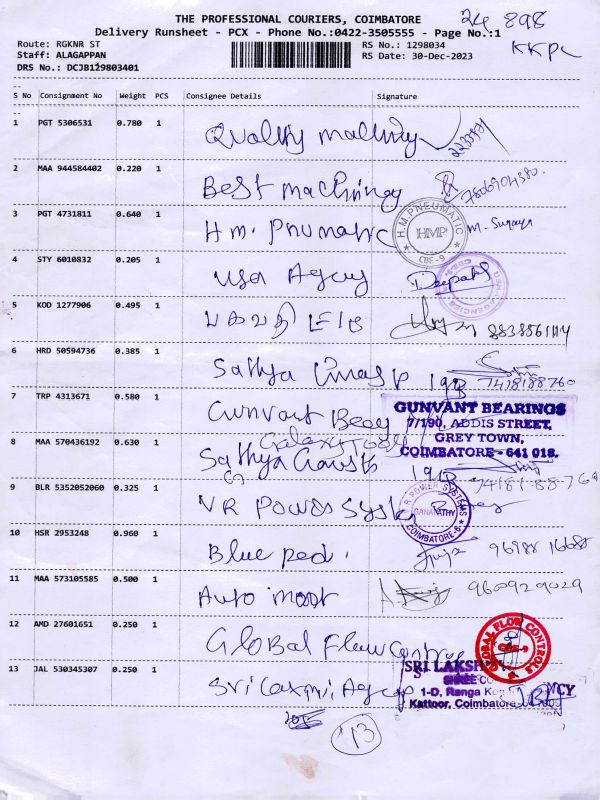 THE PROFESSIONAL COURIERS, COIMBATORE
24 898
Delivery Runsheet - PCX - Phone No.:0422-3505555 - Page No.:1
KKPL
Route: RGKNR ST
RS No.: 1298034
Staff: ALAGAPPAN
RS Date: 30-Dec-2023
DRS No.: DCJB129803401
S No Consignment No Weight PCS Consignee Details Signature
1 PGT 5306531 0.780 1 Quality
2 MAA 944584402 0.220 1 Best machinery
3 PGT 4731811 0.640 1 H.m. Pnumatic H.M.PNEUMATIC HMP CBE-9 m. Suganya
4 STY 6010832 0.205 1 Usa Agency Deepak
5 KOD 1277906 0.495 1
6 HRD 50594736 0.385 1 Sathya 7418188760
7 TRP 4313671 0.580 1 Gunvant Beag
GUNVANT BEARINGS
7/190, ADDIS STREET,
GREY TOWN,
COIMBATORE - 641 018.
8 MAA 570436192 0.630 1 Sathya 74181-88-760
9 BLR 5352052060 0.325 1 VR Power System V.R POWER SYSTEMS GANAPATHY COIMBATORE-6
10 HSR 2953248 0.960 1 Blue Red.
11 MAA 573105585 0.500 1 Auto moot 9600929029
12 AMD 27601651 0.250 1 Global Flow Control GLOBAL FLOW CONTROLS CBE-9
13 JAL 530345307 0.250 1 Sri Laxmi Agency
SRI LAKSHMI
SHREE
1-D, Ranga
Kattoor, Coimbatore
13